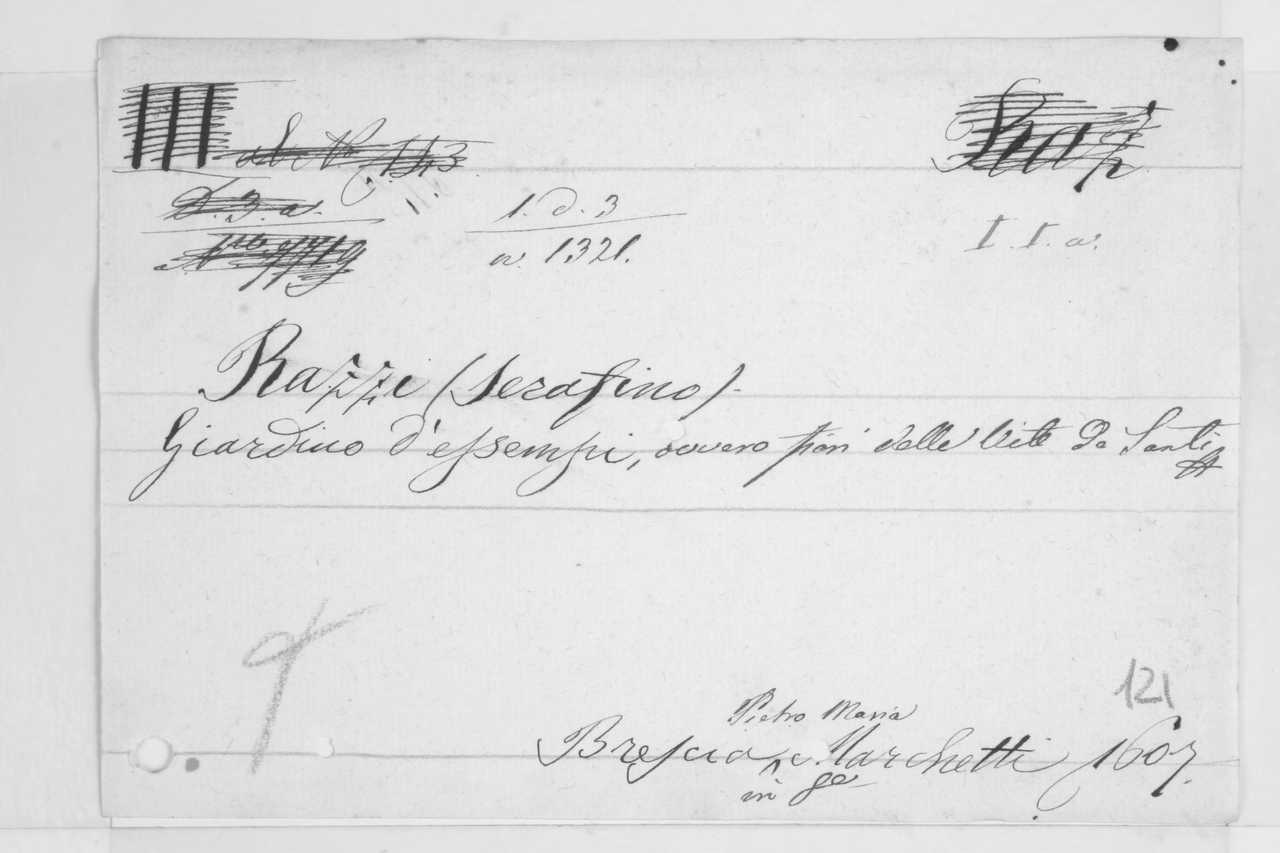 III
143
Raz
D. 3. a.
1. d. 3
a. 1321.
I. I. a.
Razzi (Serafino).
Giardino d'essempi, ovvero fiori delle vite de Santi
121
Pietro Maria
Brescia, Marchetti 1607.
in